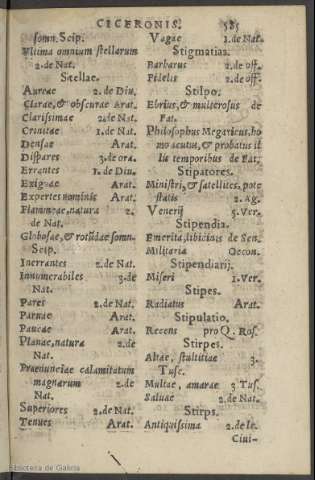 CICERONIS. 585
somn. Scip.
Vltima omnium stellarum
2. de Nat.
Stellae.
Aureae 2. de Diu.
Clarae, & obscurae Arat.
Clarissimae 2. de Nat.
Crinitae 1. de Nat.
Densae Arat.
Dispares 3. de ora.
Errantes 1. de Diu.
Exiguae Arat.
Expertes nominis Arat.
Flammeae, natura 2.
de Nat.
Globosae, & rotūdae somn.
Scip.
Inerrantes 2. de Nat.
Innumerabiles 3. de
Nat.
Pares 2. de Nat.
Paruae Arat.
Paucae Arat.
Planae, natura 2. de
Nat.
Praenunciae calamitatum
magnarum 2. de
Nat.
Superiores 2. de Nat.
Tenues Arat.
Vagae 1. de Nat.
Stigmatias.
Barbarus 2. de off.
Fidelis 2. de off.
Stilpo.
Ebrius, & mulierosus de
Fat.
Philosophus Megaricus, ho
mo acutus, & probatus il
lis temporibus de Fat.
Stipatores.
Ministri, & satellites, pote
statis 2. Ag.
Venerij 5. Ver.
Stipendia.
Emerita, libidinis de Sen.
Militaria Oecon.
Stipendiarij.
Miseri 1. Ver.
Stipes.
Radiatus Arat.
Stipulatio.
Recens pro Q. Ros.
Stirpes.
Altae, stultitiae 3.
Tusc.
Multae, amarae 3 Tus.
Saluae 2. de Nat.
Stirps.
Antiquissima 2. de le.
Ciui-
Biblioteca de Galicia